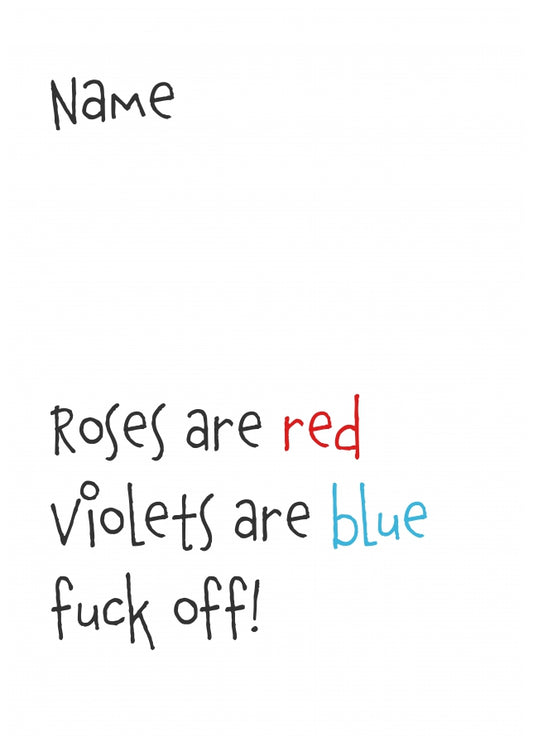 Name
Roses are red
Violets are blue
fuck off!